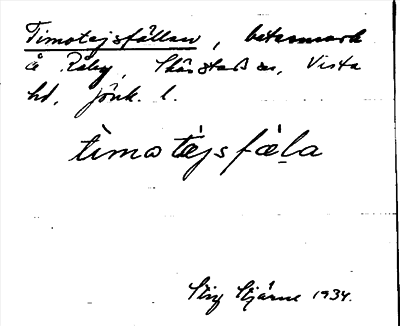 Timotejsfållan, betesmark
å Råby, Skärstads sn, Vista
hd, Jönk. l.
tìmotæ̀jsfæḷa
Stig Stjärne 1934.